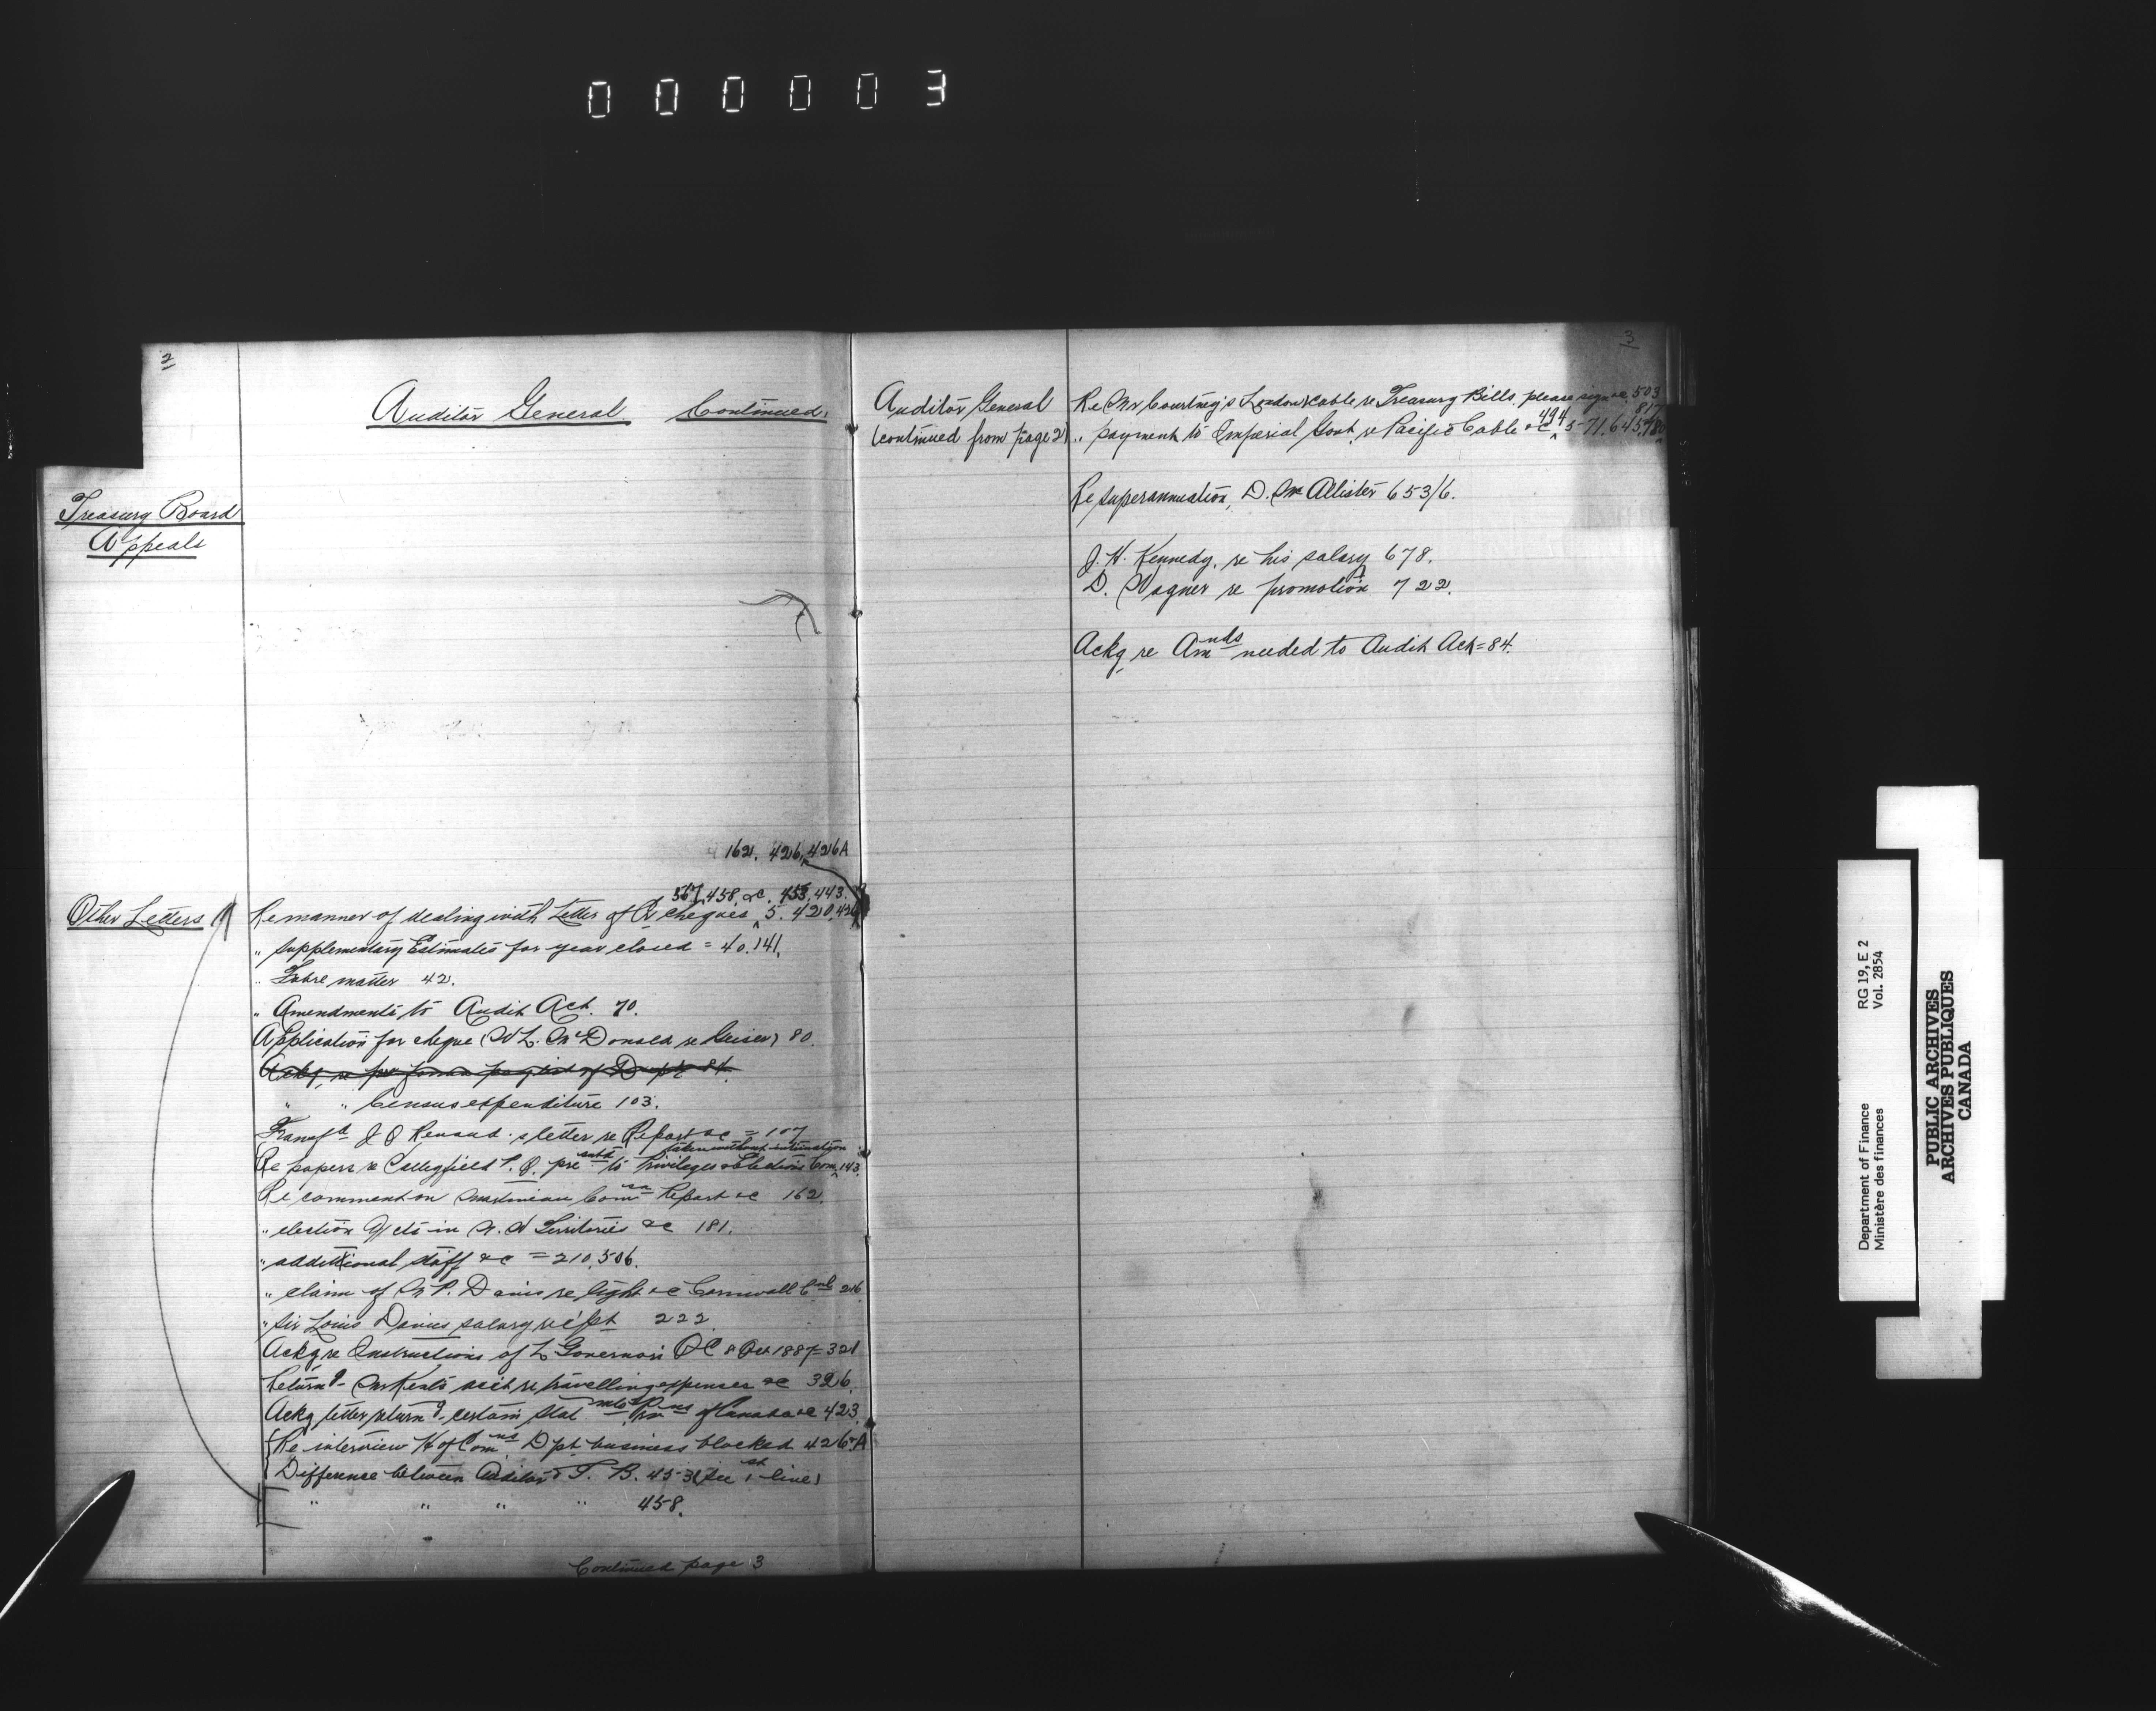 000003
2
Auditor General Continued.
Treasury Board
Appeals
162. 426, 426A
567, 458, &c. 453, 443.
Other Letters
Re manner of dealing with Letter of Cr cheques 5. 420, 426
" Supplementary Estimates for year closed = 40. 141.
" Fabre matter 42.
" Amendments to Audit Act. 70.
Application for cheque (W L. McDonald re Geiser) 80.
Ackg re pay list of Dept 84.
" " Census expenditure 103.
Transfd J O Renaud's letter re Report &c = 107
taken without intimation
Re papers re Valleyfield P.O. presentd to Privileges & Elections Com 143.
Re comment on Martineau Comsn Report &c 162.
" election accts in N. W Territories &c 181.
" additional staff &c = 210, 506.
" claim of M. P. Davis re light &c Cornwall Cnl 216
" Sir Louis Davies salary rect 222.
Ackg re Instructions of Lt Governors OC 8 Oct 1887 = 321
Return'g acct re travelling expenses &c 326.
Ackg letter return'g certain stat mts of Canada &c 423.
Re interview H of Comns Dpt business blocked 426-A
Difference between Auditor & T. B. 453 (see 1st line)
" " " " 458.
Continued page 3
3
Auditor General
(continued from page 2)
Re Mr Courtney's London Cable re Treasury Bills, please sign &c 503
817
" payment to Imperial Govt re Pacific Cable &c 494 571, 645, 780
Re Superannuation, D. McAllister 653/6.
J. H. Kennedy, re his salary 678.
D. Wagner re promotion 722.
Ackg re Amnds needed to Audit Act = 84.
RG 19, E 2
Vol. 2854
Department of Finance
Ministère des finances
PUBLIC ARCHIVES
ARCHIVES PUBLIQUES
CANADA